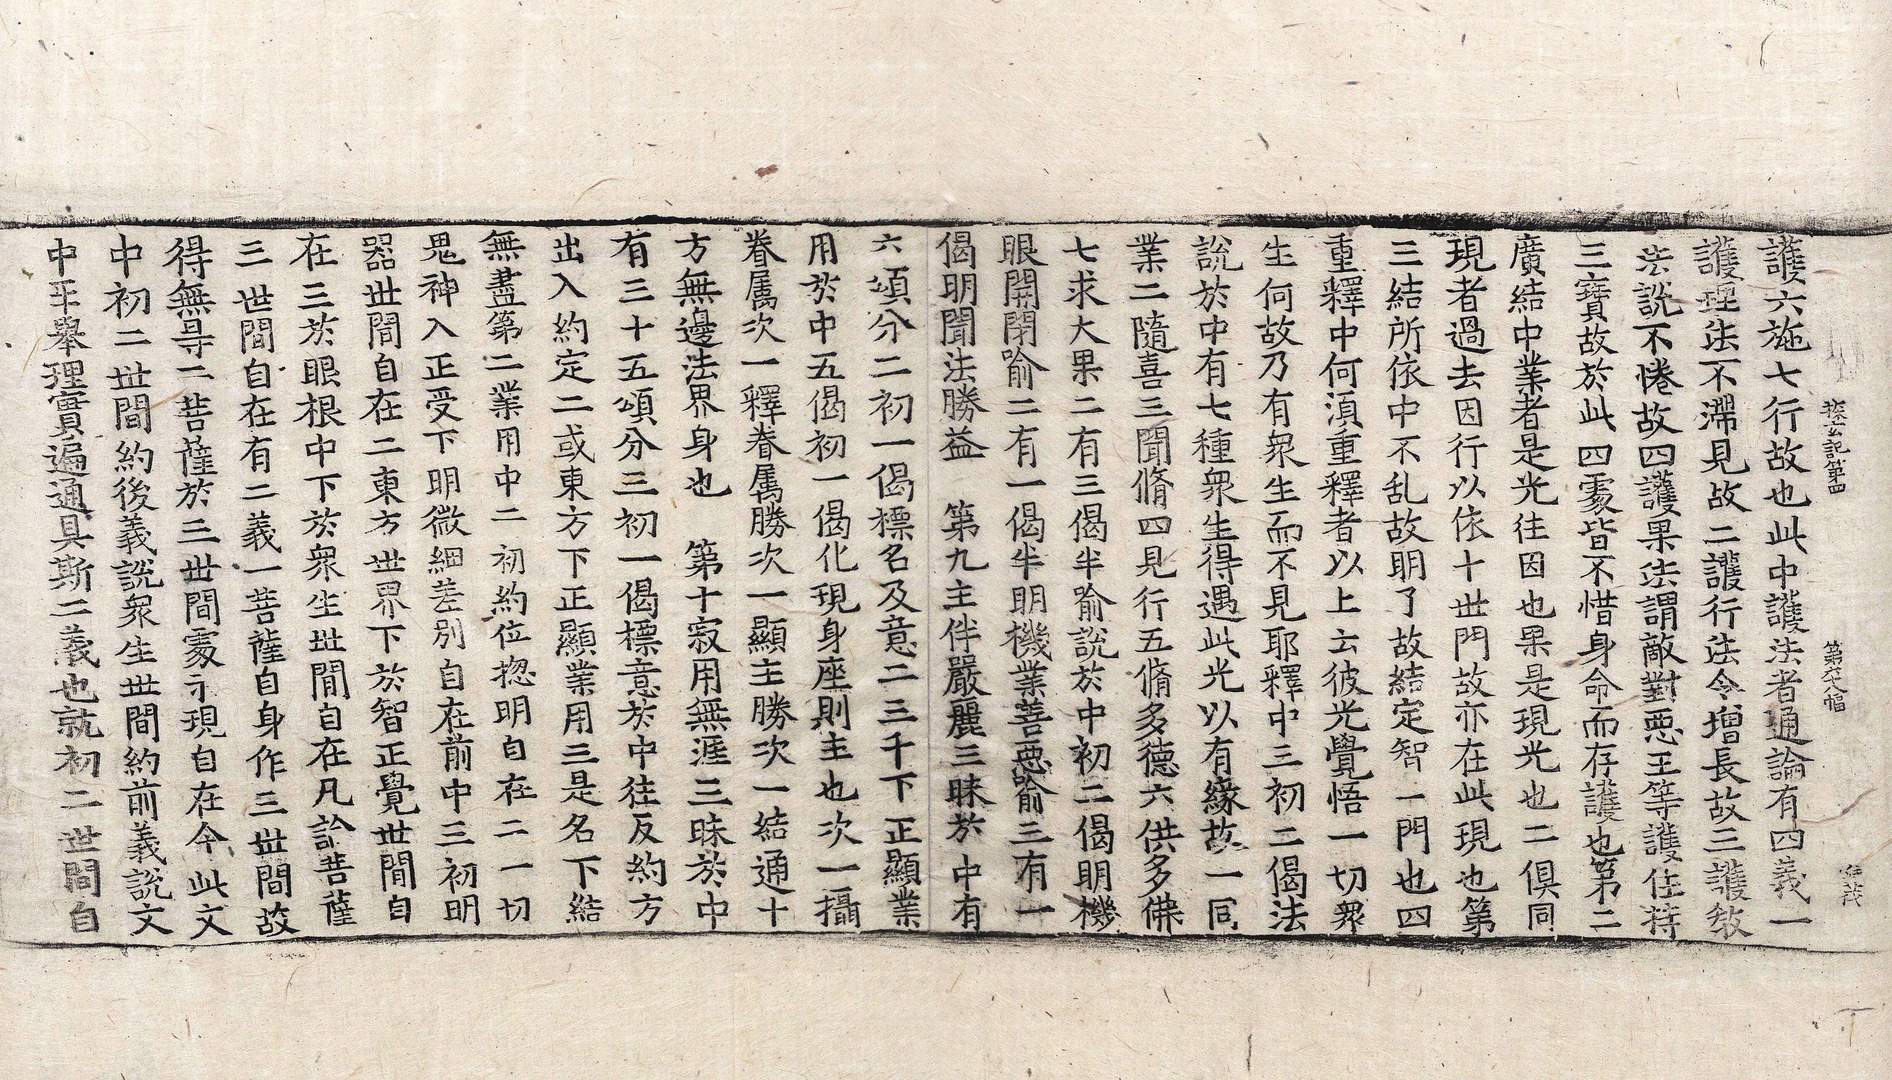 探玄記第四 第六八幅
護六施七行故也此中護法者通論有四義一
護理法不滯見故二護行法令增長故三護敎
法說不惓故四護果法謂敵對惡王等護住持
三寶故於此四䖏皆不惜身命而存護也第二
廣結中業者是光徃因也果是現光也二俱同
現者過去因行以依十世門故亦在此現也第
三結所依中不乱故明了故結定智一門也四
重釋中何湏重釋者以上云彼光覺悟一切衆
生何故乃有衆生而不見耶釋中三初二偈法
說於中有七種衆生得遇此光以有緣故一同
業二隨喜三聞脩四見行五脩多德六供多佛
七求大果二有三偈半喩說於中初二偈明機
眼開閉喩二有一偈半明機業善惡喩三有一
偈明聞法勝益　第九主伴嚴麗三昧於中有
六頌分二初一偈標名及意二三千下正顯業
用於中五偈初一偈化現身座則主也次一攝
眷屬次一釋眷屬勝次一顯主勝次一結通十
方無邊法界身也　第十寂用無涯三昧於中
有三十五頌分三初一偈標意於中徃反約方
出入約定二或東方下正顯業用三是名下結
無盡第二業用中二初約位揔明自在二一切
鬼神入正受下明微細差別自在前中三初明
器世間自在二東方世界下於智正覺世間自
在三於眼根中下於衆生世間自在凡論菩薩
三世間自在有二義一菩薩自身作三世間故
得無㝵二菩薩於三世間䖏示現自在今此文
中初二世間約後義說衆生世間約前義說文
中平舉理實遍通具斯二義也就初二世間自